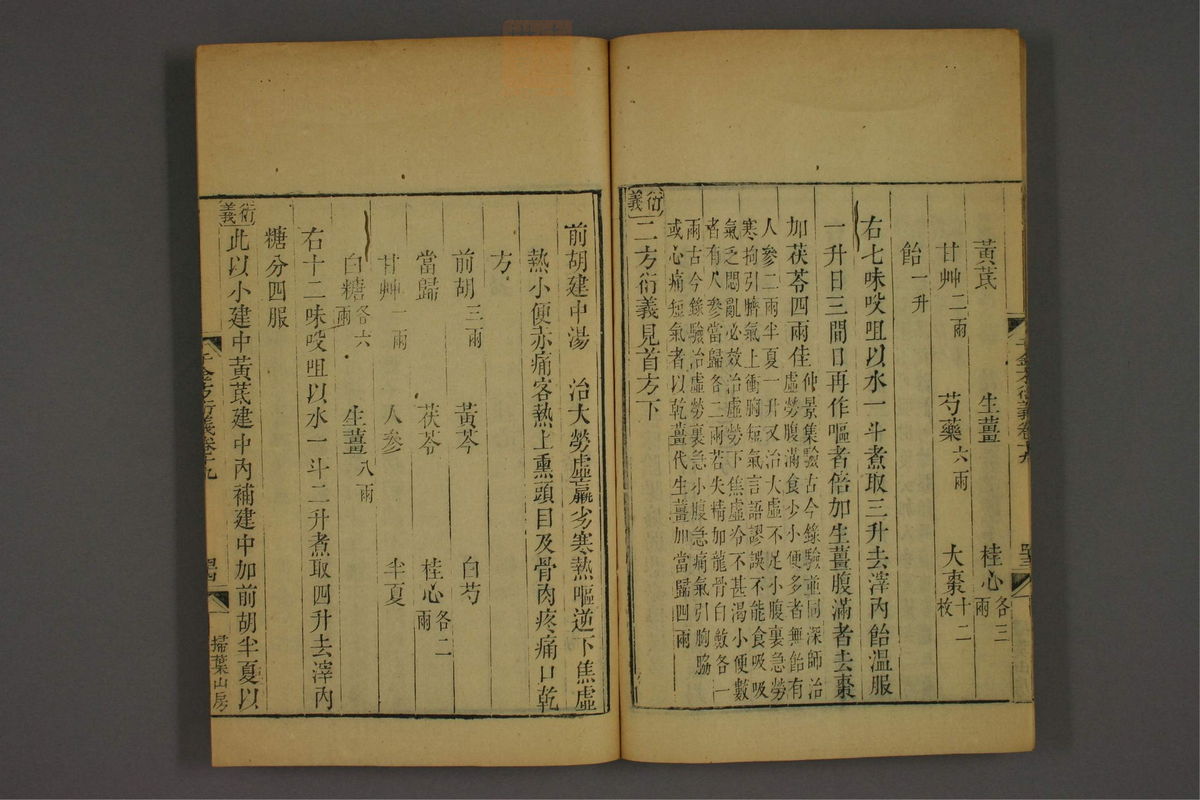 黃芪　生薑　桂心各三兩
甘艸二兩　芍藥六兩　大棗十二枚
飴一升
右七味㕮咀以水一斗煮取三升去滓內飴溫服
一升日三間日再作嘔者倍加生薑腹滿者去棗
加茯苓四兩佳
仲景集驗古今錄驗並同深師治
虛勞腹滿食少小便多者無飴有
人參二兩半夏一升又治大虛不足小腹裏急勞
寒拘引臍氣上衝胸短氣言語謬誤不能食吸吸
氣乏悶亂必效治虛勞下焦虛冷不甚渴小便數
者有人參當歸各二兩若失精加龍骨白斂各一
兩古今錄驗治虛勞裏急小腹急痛氣引胸脇
或心痛短氣者以乾薑代生薑加當歸四兩
衍義
二方衍義見首方下
千金方衍義卷十九
前胡建中湯　治大勞虛羸劣寒熱嘔逆下焦虛
熱小便赤痛客熱上熏頭目及骨肉疼痛口乾
方
前胡三兩　黃芩　白芍
當歸　茯苓　桂心各二兩
甘艸一兩　人參　半夏
白糖各六兩　生薑八兩
右十二味㕮咀以水一斗二升煮取四升去滓內
糖分四服
衍義
此以小建中黃芪建中內補建中加前胡半夏以
千金方衍義卷十九
掃葉山房